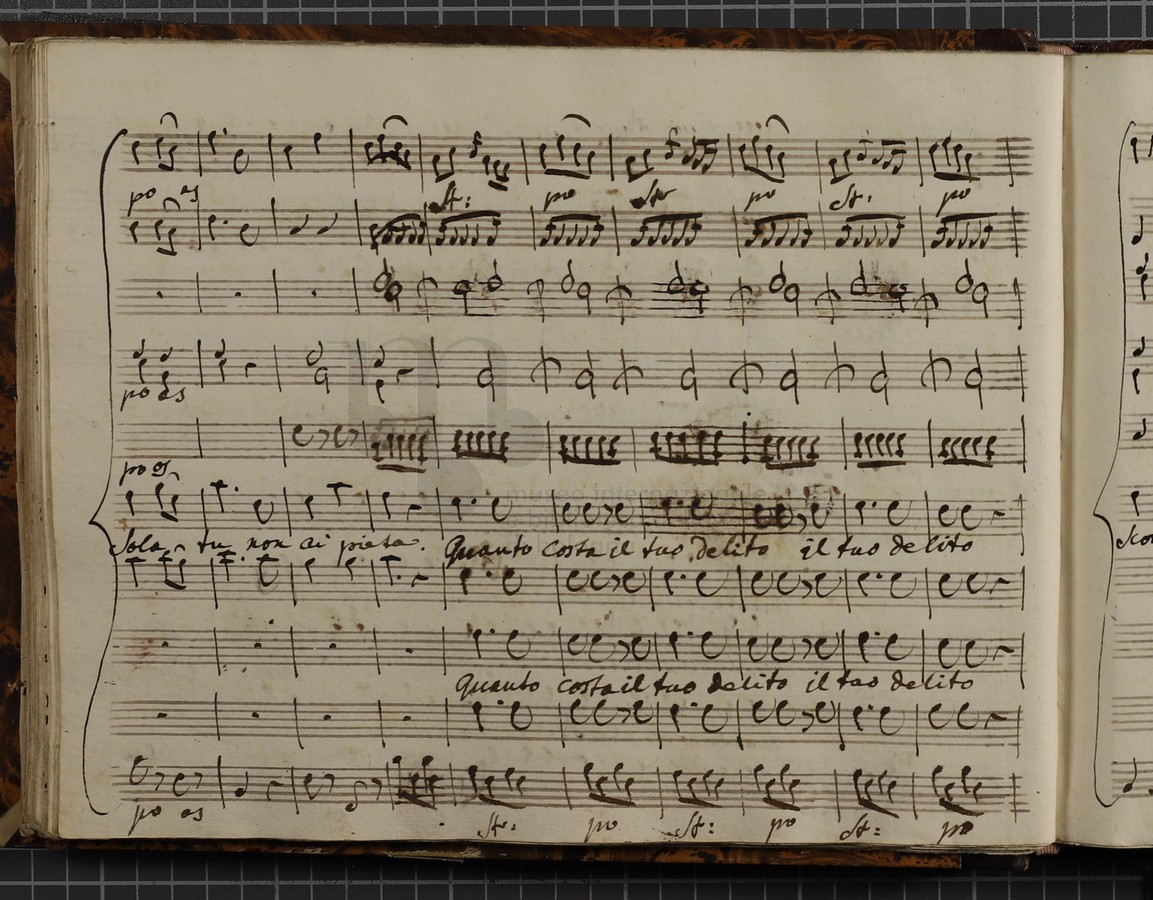 po
St:
po
St
po
St:
po
po
po
Sola tu non ai pieta. Quanto costa il tuo delito il tuo delito
Quanto costa il tuo delito il tuo delito
po
St:
po
St:
po
St:
po